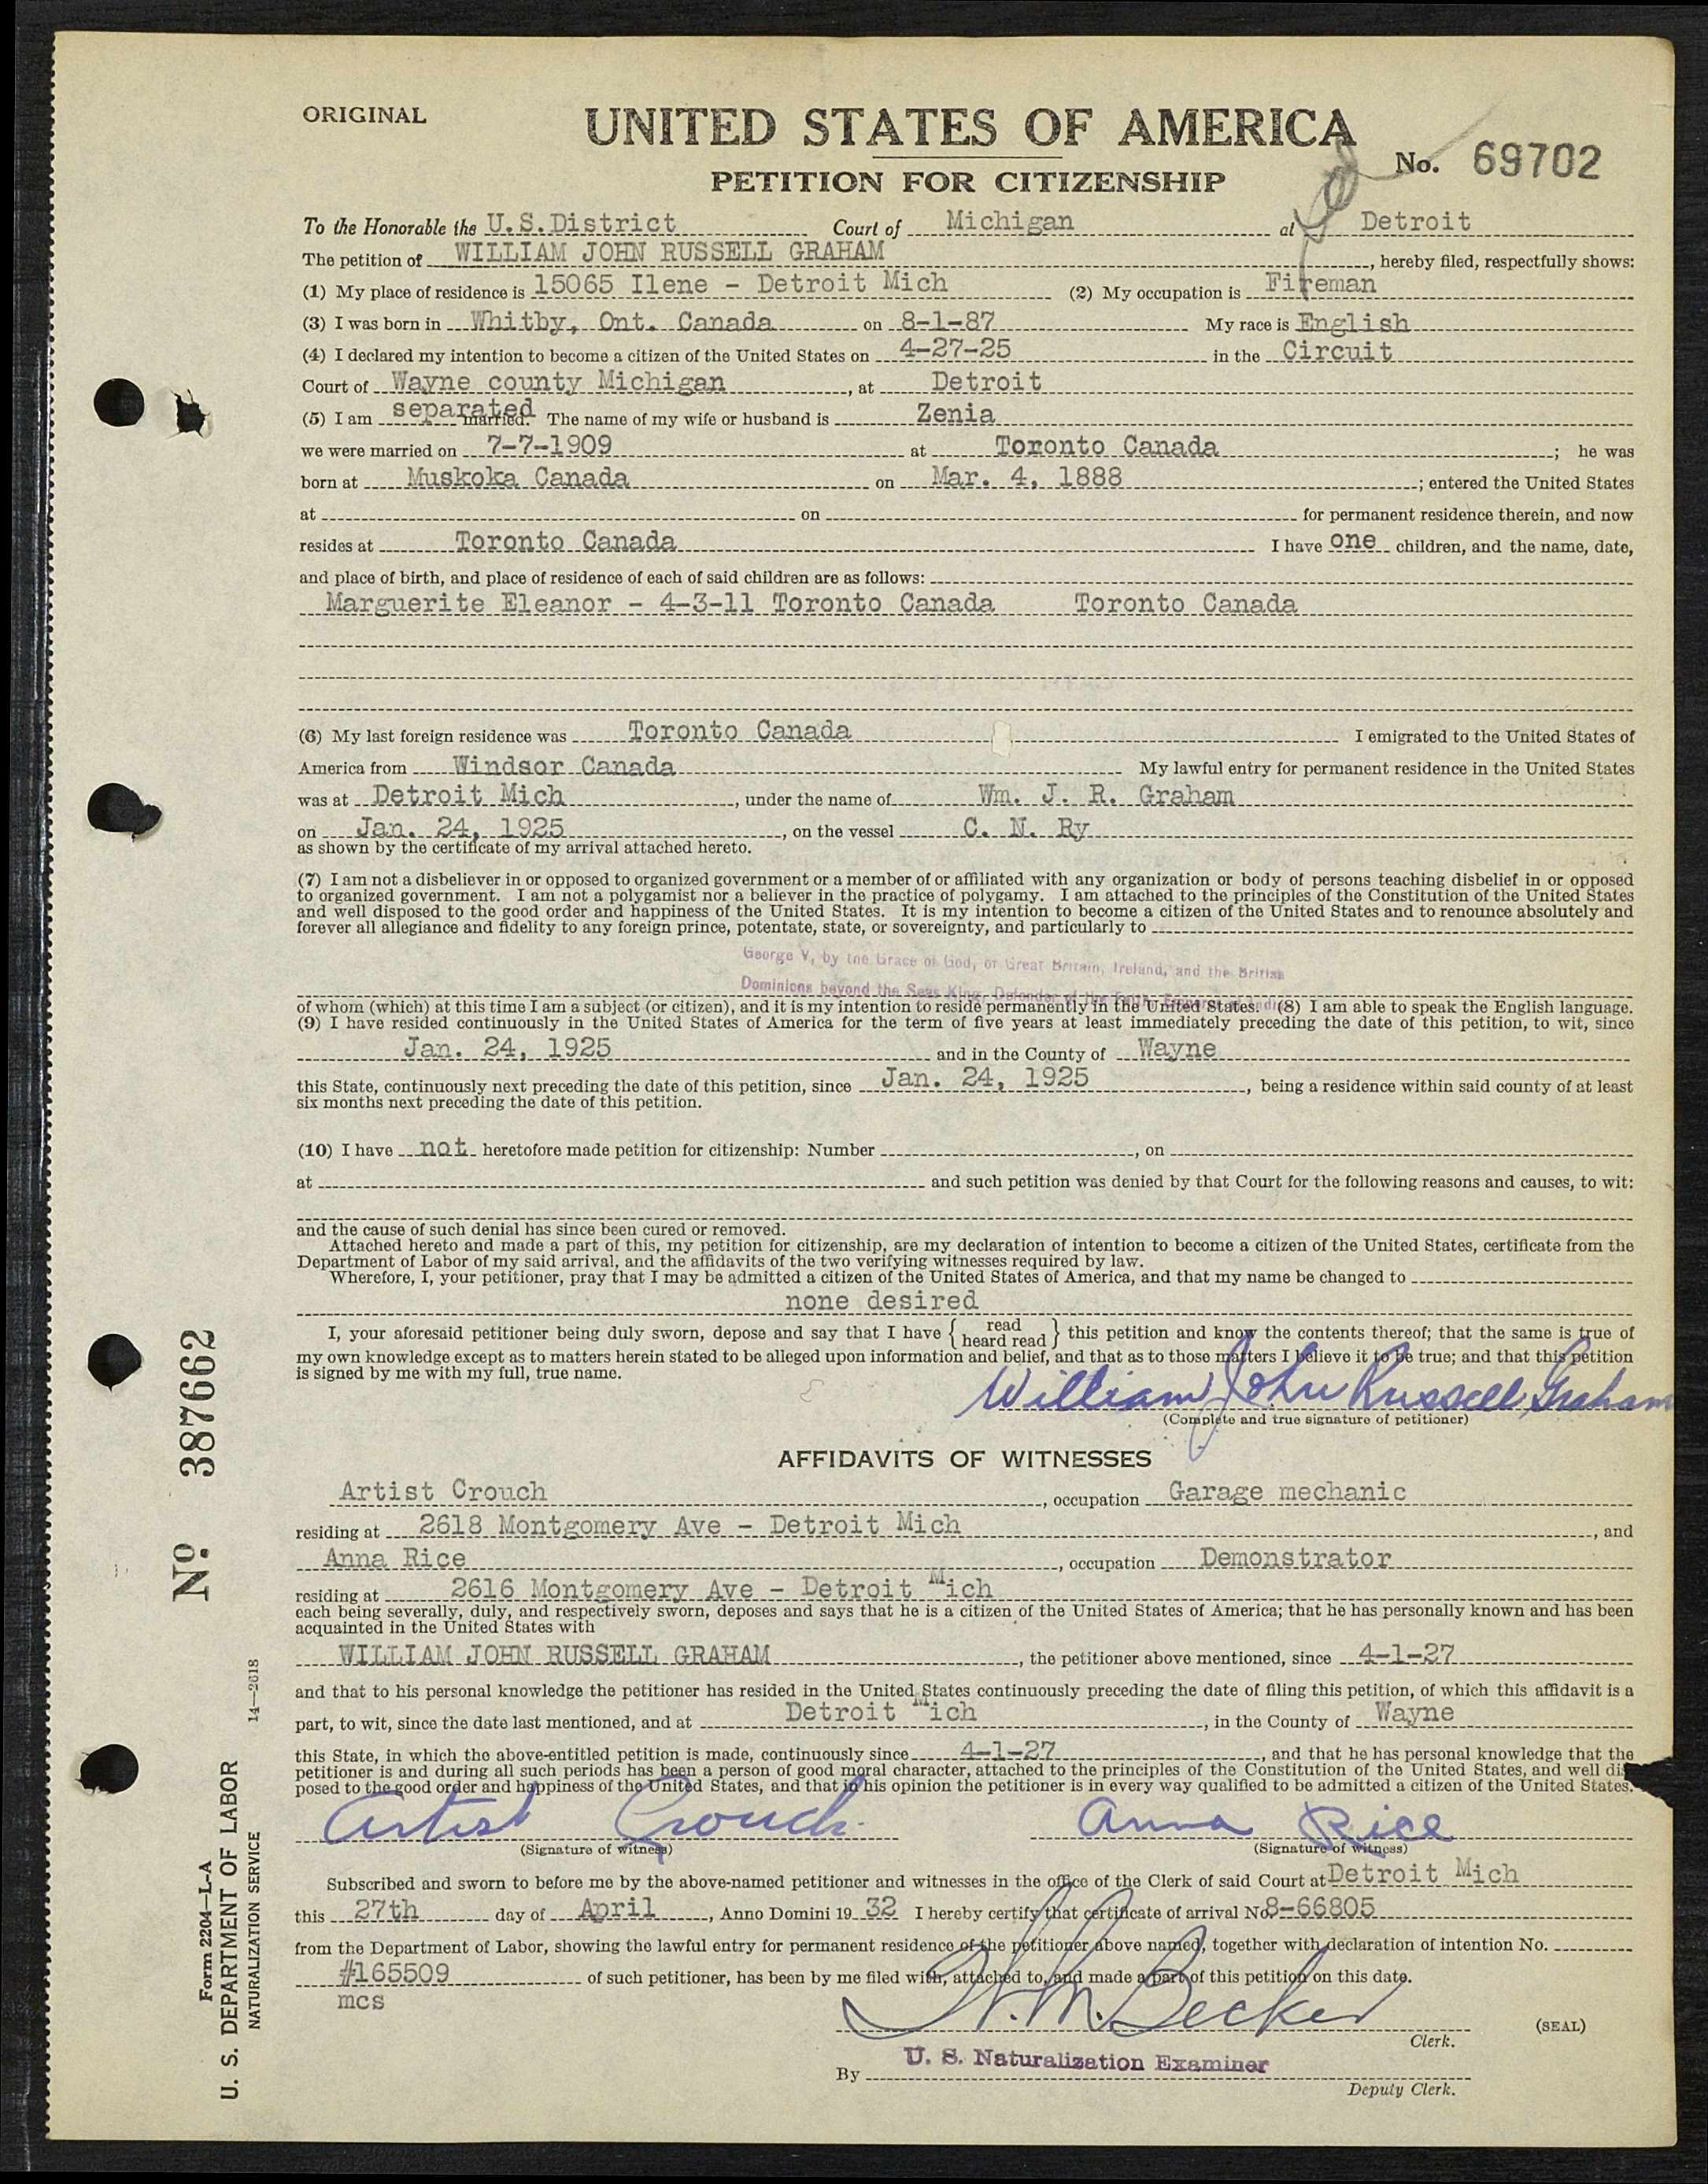 ORIGINAL
UNITED STATES OF AMERICA
No. 69702
PETITION FOR CITIZENSHIP
To the Honorable the U.S.District Court of Michigan at Detroit
The petition of WILLIAM JOHN RUSSELL GRAHAM, hereby filed, respectfully shows:
(1) My place of residence is 15065 Ilene - Detroit Mich (2) My occupation is Fireman
(3) I was born in Whitby, Ont. Canada on 8-1-87 My race is English
(4) I declared my intention to become a citizen of the United States on 4-27-25 in the Circuit
Court of Wayne county Michigan, at Detroit
(5) I am separated married. The name of my wife or husband is Zenia
we were married on 7-7-1909 at Toronto Canada; he was
born at Muskoka Canada on Mar. 4, 1888; entered the United States
at on for permanent residence therein, and now
resides at Toronto Canada I have one children, and the name, date,
and place of birth, and place of residence of each of said children are as follows:
Marguerite Eleanor - 4-3-11 Toronto Canada Toronto Canada
(6) My last foreign residence was Toronto Canada I emigrated to the United States of
America from Windsor Canada My lawful entry for permanent residence in the United States
was at Detroit Mich, under the name of Wm. J. R. Graham
on Jan. 24, 1925, on the vessel C. N. Ry
as shown by the certificate of my arrival attached hereto.
(7) I am not a disbeliever in or opposed to organized government or a member of or affiliated with any organization or body of persons teaching disbelief in or opposed
to organized government. I am not a polygamist nor a believer in the practice of polygamy. I am attached to the principles of the Constitution of the United States
and well disposed to the good order and happiness of the United States. It is my intention to become a citizen of the United States and to renounce absolutely and
forever all allegiance and fidelity to any foreign prince, potentate, state, or sovereignty, and particularly to
George V, by the Grace of God, of Great Britain, Ireland, and the British
Dominions beyond the Seas King, Defender of the Faith, Emperor of India
of whom (which) at this time I am a subject (or citizen), and it is my intention to reside permanently in the United States. (8) I am able to speak the English language.
(9) I have resided continuously in the United States of America for the term of five years at least immediately preceding the date of this petition, to wit, since
Jan. 24, 1925 and in the County of Wayne
this State, continuously next preceding the date of this petition, since Jan. 24, 1925, being a residence within said county of at least
six months next preceding the date of this petition.
(10) I have not heretofore made petition for citizenship: Number , on
at and such petition was denied by that Court for the following reasons and causes, to wit:
and the cause of such denial has since been cured or removed.
Attached hereto and made a part of this, my petition for citizenship, are my declaration of intention to become a citizen of the United States, certificate from the
Department of Labor of my said arrival, and the affidavits of the two verifying witnesses required by law.
Wherefore, I, your petitioner, pray that I may be admitted a citizen of the United States of America, and that my name be changed to
none desired
I, your aforesaid petitioner being duly sworn, depose and say that I have {read heard read} this petition and know the contents thereof; that the same is true of
my own knowledge except as to matters herein stated to be alleged upon information and belief, and that as to those matters I believe it to be true; and that this petition
is signed by me with my full, true name.
William John Russell Graham
(Complete and true signature of petitioner)
AFFIDAVITS OF WITNESSES
Artist Crouch, occupation Garage mechanic
residing at 2618 Montgomery Ave - Detroit Mich, and
Anna Rice, occupation Demonstrator
residing at 2616 Montgomery Ave - Detroit Mich
each being severally, duly, and respectively sworn, deposes and says that he is a citizen of the United States of America; that he has personally known and has been
acquainted in the United States with
WILLIAM JOHN RUSSELL GRAHAM, the petitioner above mentioned, since 4-1-27
and that to his personal knowledge the petitioner has resided in the United States continuously preceding the date of filing this petition, of which this affidavit is a
part, to wit, since the date last mentioned, and at Detroit Mich, in the County of Wayne
this State, in which the above-entitled petition is made, continuously since 4-1-27, and that he has personal knowledge that the
petitioner is and during all such periods has been a person of good moral character, attached to the principles of the Constitution of the United States, and well dis
posed to the good order and happiness of the United States, and that in his opinion the petitioner is in every way qualified to be admitted a citizen of the United States.
Artist Crouch Anna Rice
(Signature of witness) (Signature of witness)
Subscribed and sworn to before me by the above-named petitioner and witnesses in the office of the Clerk of said Court at Detroit Mich
this 27th day of April, Anno Domini 1932 I hereby certify that certificate of arrival No. 8-66805
from the Department of Labor, showing the lawful entry for permanent residence of the petitioner above named, together with declaration of intention No.
#165509 of such petitioner, has been by me filed with, attached to, and made a part of this petition on this date.
mcs
H. M. Becker
Clerk.
(SEAL)
By U. S. Naturalization Examiner
Deputy Clerk.
No. 387662
14—2618
Form 2204—L-A
U. S. DEPARTMENT OF LABOR
NATURALIZATION SERVICE